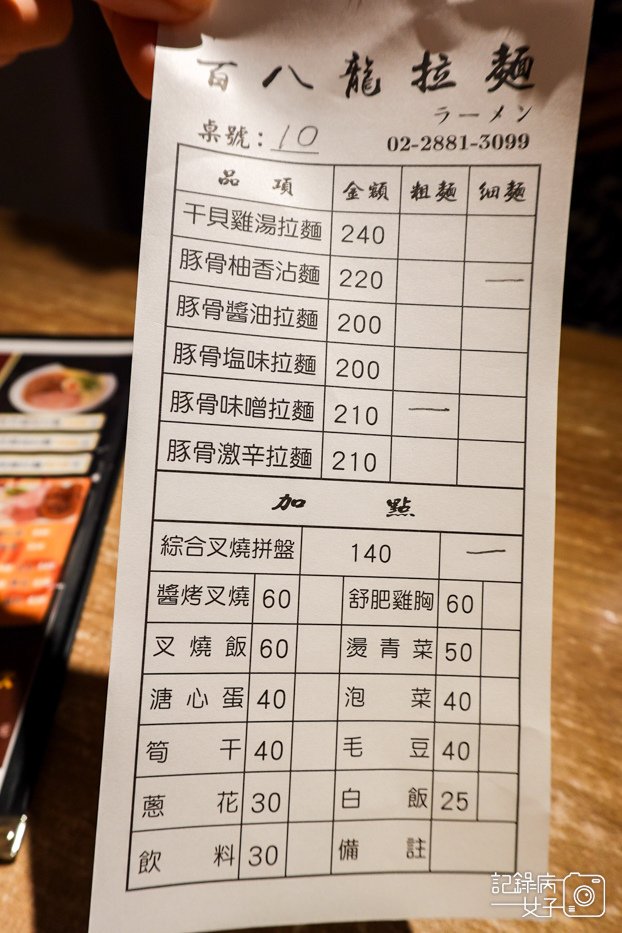 百八龍拉麵
ラーメン
桌號：10 02-2881-3099
品項 金額 粗麵 细麵
干貝雞湯拉麵 240
豚骨柚香沾麵 220 一
豚骨醬油拉麵 200
豚骨塩味拉麵 200
豚骨味噌拉麵 210 一
豚骨激辛拉麵 210
加點
綜合叉燒拼盤 140 一
醬烤叉燒 60 舒肥雞胸 60
叉燒飯 60 燙青菜 50
溏心蛋 40 泡菜 40
筍干 40 毛豆 40
蔥花 30 白飯 25
飲料 30 備註
記錄病
一女子